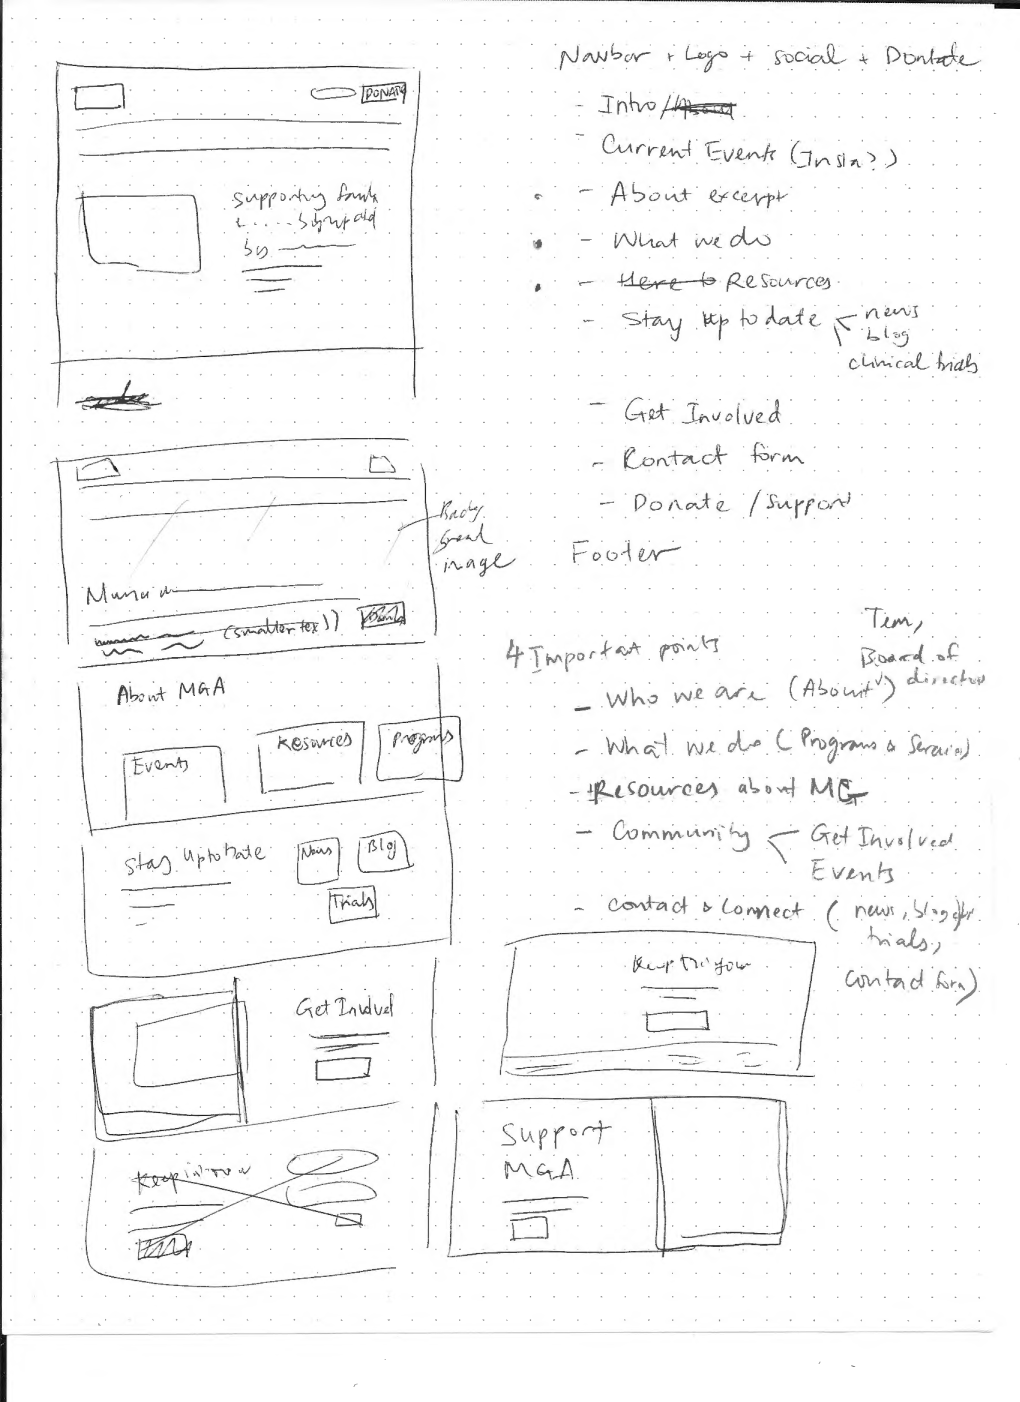 DONATE
supporting
by
(smaller text)
Background
image
About MGA
Events
Resources
Programs
Stay Up to Date
News
Blog
Trials
Get Involved
Keep in
Navbar + Logo + social + Dontate
- Intro / About
- Current Events (Insta?)
- About excerpt
- What we do
- Here to Resources
- Stay Up to date
news
blog
clinical trials
- Get Involved
- Contact form
- Donate / Support
Footer
4 Important points
Team,
Board of
directors
- Who we are (About)
- What we do (Programs & Services)
- Resources about MG
- Community
Get Involved
Events
- Contact & Connect (news, blog
trials,
contact form)
Keep
Support
MGA